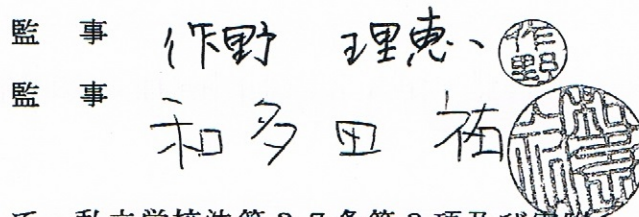 監 事 作野 理恵
監 事 和多田 祐
私立学校法第37条第3項及び